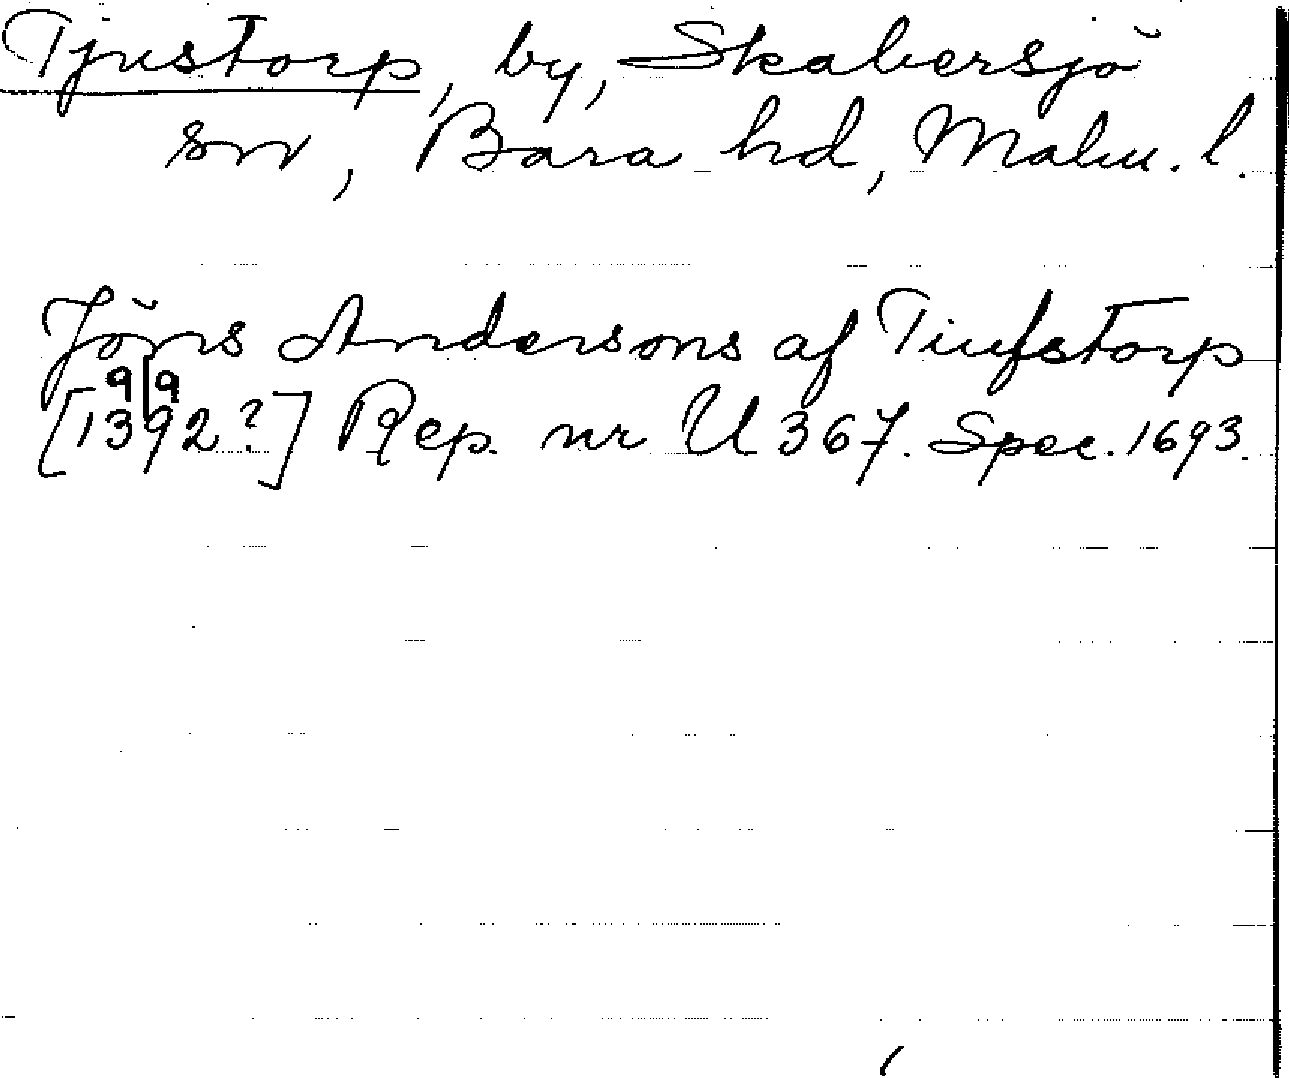 Tjustorp, by, Skabersjö
sn, Bara hd, Malm. l.
Jöns Andersons af Tiufstorp
9/9
[1392?] Rep. nr U 367. Spec. 1693.